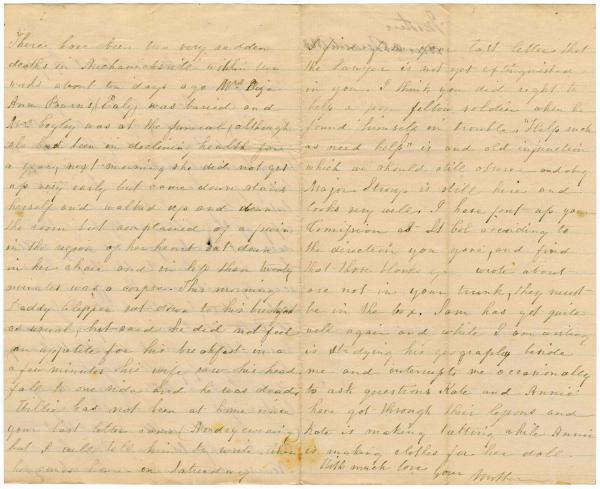 There have been two very sudden
deaths in Mechanicksville within two
weeks about ten days ago Mrs
Ann Burns, was buried and
Mrs Eogley was at the funeral, although
she had been in declining health for
a year, next morning she did not get
up very early but came down stairs
herself and walked up and down
the room but complained of a pain
in the region of her heart sat down
in her chair and in less than twenty
minutes was a corpse. This morning
Daddy Clipper sat down to his breakfast
as usual, but said he did not feel
an appetite for his breakfast in a
a few minutes his wife saw his head
fall to one side and he was dead,
Willie has not been at home since
your last letter came Sunday evening
but I will tell him to write when
he comes home on Saturday
I find in your last letter that
the Lawyer is not yet extinguished
in you. I think you did right to
help a poor fellow soldier when he
found himself in trouble. "Help such
as need help" is and old injunction
which we should still observe and obey
Major Stroup is still here and
looks very well. I have put up your
Commission as Lt Col according to
the direction you gave, and find
that those blanks you wrote about
are not in your trunk, they must
be in the box. Sam has got quite
well again and while I am writing
is studying his geography beside
me and interrupts me occasionally
to ask questions Kate and Annie
have got through their lessons and
Kate is making tatting while Annie
is making clothes for her doll.
With much love your Mother